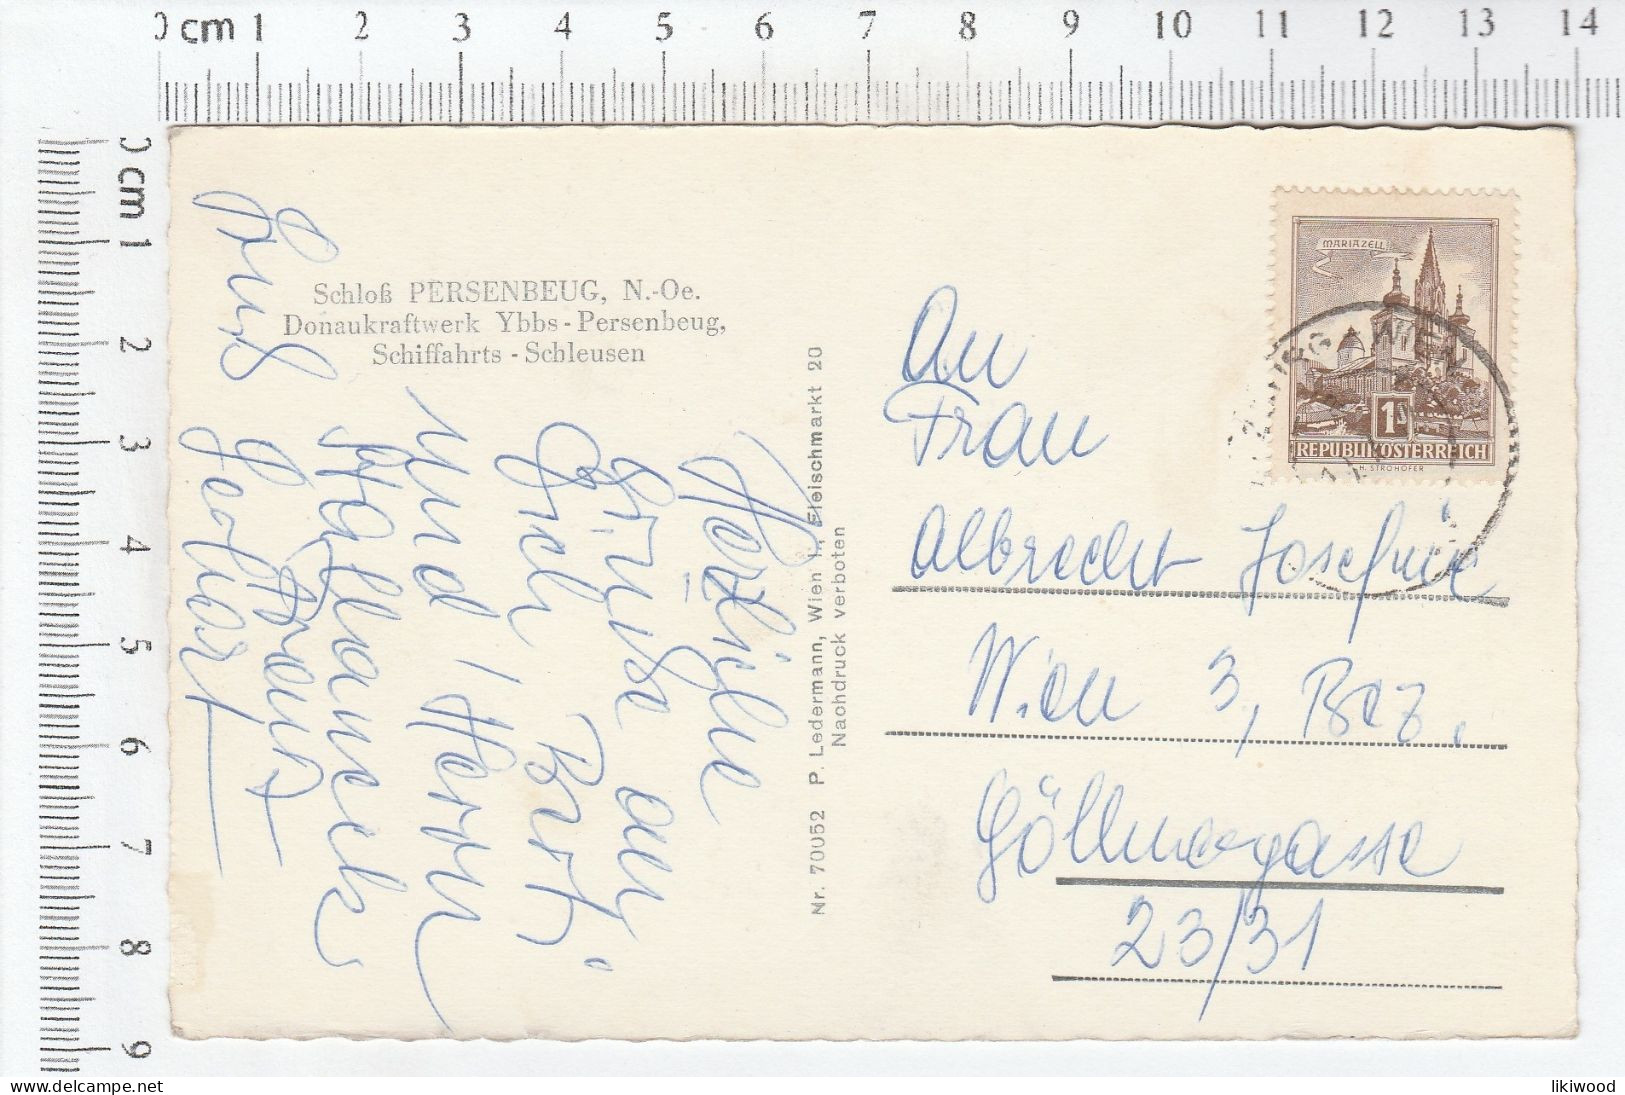 0 cm 1 2 3 4 5 6 7 8 9 10 11 12 13 14
0 cm 1 2 3 4 5 6 7 8 9
Schloß PERSENBEUG, N.-Oe.
Donaukraftwerk Ybbs-Persenbeug,
Schiffahrts-Schleusen
Herzliche
Grüße an
Dich,
und Herrn
Gruß
Nr. 70052 P. Ledermann, Wien I., Fleischmarkt 20
Nachdruck verboten
MARIAZELL
1S
REPUBLIK ÖSTERREICH
H. STROHOFER
WIEN
An
Frau
Albrecht Josefine
Wien 3, Bez.
Göllnergasse
23/31
delcampe.net
likiwood